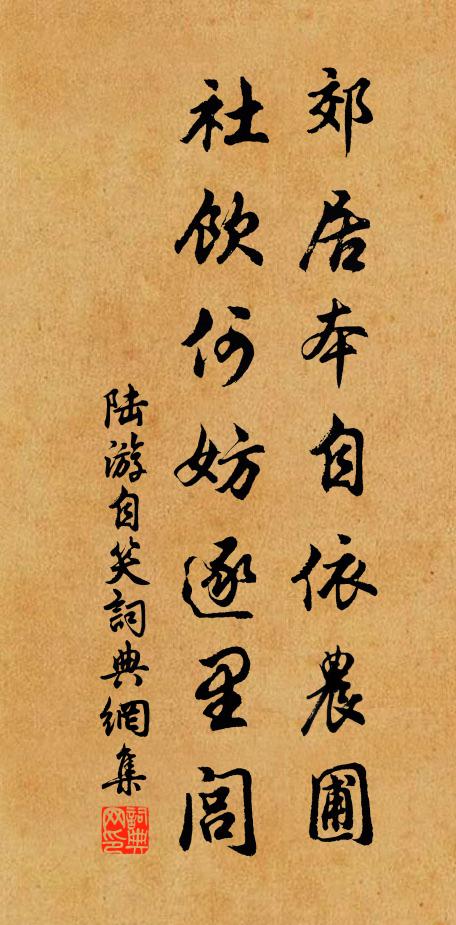 郊居本自依農圃
社飲何妨逐里閭
陸游自笑詞典網集
詞典网印